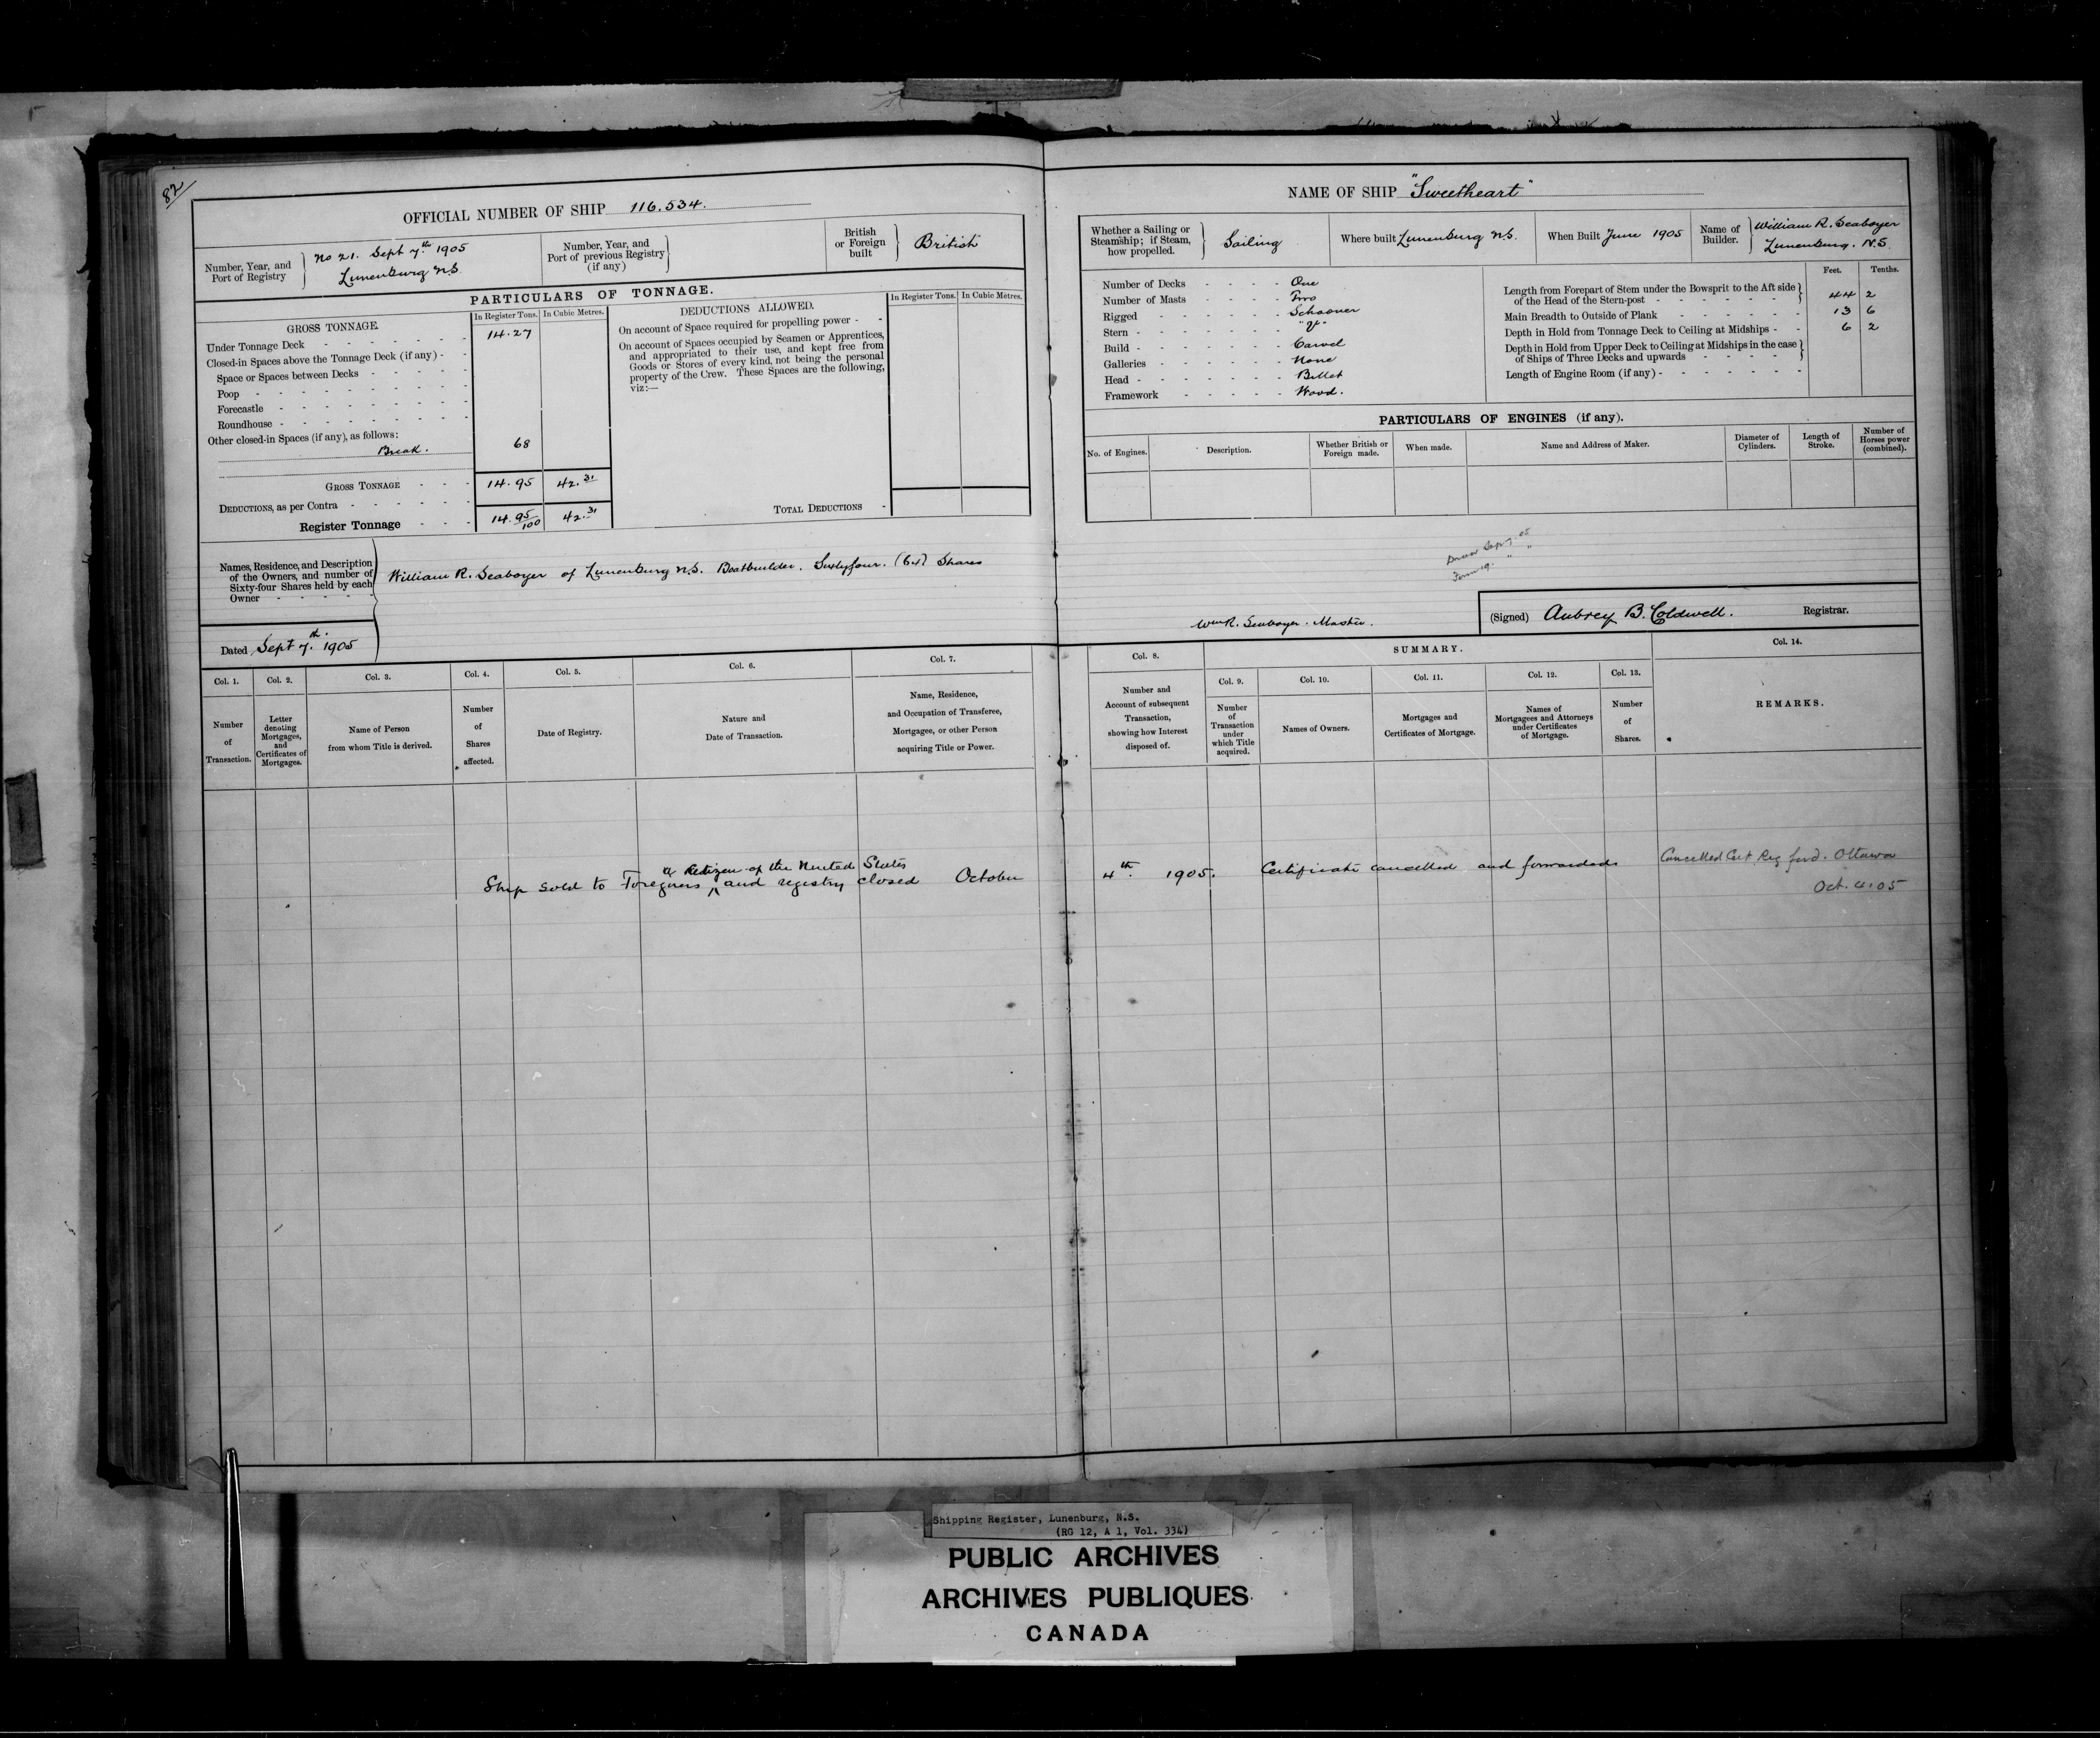 82
OFFICIAL NUMBER OF SHIP 116.534.
Number, Year, and
Port of Registry
No 21. Sept 7th 1905
Lunenburg N.S.
Number, Year, and
Port of previous Registry
(if any)
British
or Foreign
built
British
PARTICULARS OF TONNAGE.
GROSS TONNAGE.
In Register Tons. In Cubic Metres.
Under Tonnage Deck 14.27
Closed-in Spaces above the Tonnage Deck (if any) -
Space or Spaces between Decks
Poop
Forecastle
Roundhouse
Other closed-in Spaces (if any), as follows:
Break. 68
GROSS TONNAGE 14.95 42.31
DEDUCTIONS, as per Contra
Register Tonnage 14.95/100 42.31
DEDUCTIONS ALLOWED.
In Register Tons. In Cubic Metres.
On account of Space required for propelling power - -
On account of Spaces occupied by Seamen or Apprentices,
and appropriated to their use, and kept free from
Goods or Stores of every kind, not being the personal
property of the Crew. These Spaces are the following,
viz:—
TOTAL DEDUCTIONS -
Names, Residence, and Description
of the Owners, and number of
Sixty-four Shares held by each
Owner
William R. Seaboyer of Lunenburg N.S. Boatbuilder. Sixtyfour. (64) Shares
Dated Sept 7th. 1905
Col. 1. Col. 2. Col. 3. Col. 4. Col. 5. Col. 6. Col. 7.
Number
of
Transaction.
Letter
denoting
Mortgages,
and
Certificates of
Mortgages.
Name of Person
from whom Title is derived.
Number
of
Shares
affected.
Date of Registry.
Nature and
Date of Transaction.
Name, Residence,
and Occupation of Transferee,
Mortgagee, or other Person
acquiring Title or Power.
NAME OF SHIP "Sweetheart"
Whether a Sailing or
Steamship; if Steam,
how propelled.
Sailing
Where built Lunenburg N.S.
When Built June 1905
Name of
Builder.
William R. Seaboyer
Lunenburg. N.S.
Number of Decks - One
Number of Masts - Two
Rigged - Schooner
Stern -
Build - Carvel
Galleries - None
Head - Billet
Framework - Wood.
Feet. Tenths.
Length from Forepart of Stem under the Bowsprit to the Aft side
of the Head of the Stern-post - 44 2
Main Breadth to Outside of Plank - 13 6
Depth in Hold from Tonnage Deck to Ceiling at Midships - 6 2
Depth in Hold from Upper Deck to Ceiling at Midships in the case
of Ships of Three Decks and upwards
Length of Engine Room (if any) -
PARTICULARS OF ENGINES (if any).
No. of Engines.
Description.
Whether British or
Foreign made.
When made.
Name and Address of Maker.
Diameter of
Cylinders.
Length of
Stroke.
Number of
Horses power
(combined).
Wm R. Seaboyer. Master.
(Signed) Aubrey B. Coldwell. Registrar.
Col. 8.
Number and
Account of subsequent
Transaction,
showing how Interest
disposed of.
SUMMARY.
Col. 9. Col. 10. Col. 11. Col. 12. Col. 13. Col. 14.
Number
of
Transaction
under
which Title
acquired.
Names of Owners.
Mortgages and
Certificates of Mortgage.
Names of
Mortgagees and Attorneys
under Certificates
of Mortgage.
Number
of
Shares.
REMARKS.
a Citizen of the United States
Ship sold to Foregners ^ and registry closed October 4th. 1905. Certificate cancelled and forwarded
Cancelled Cert Reg ford. Ottawa
Oct. 4.05
Shipping Register, Lunenburg, N.S.
(RG 12, A 1, Vol. 334)
PUBLIC ARCHIVES
ARCHIVES PUBLIQUES
CANADA